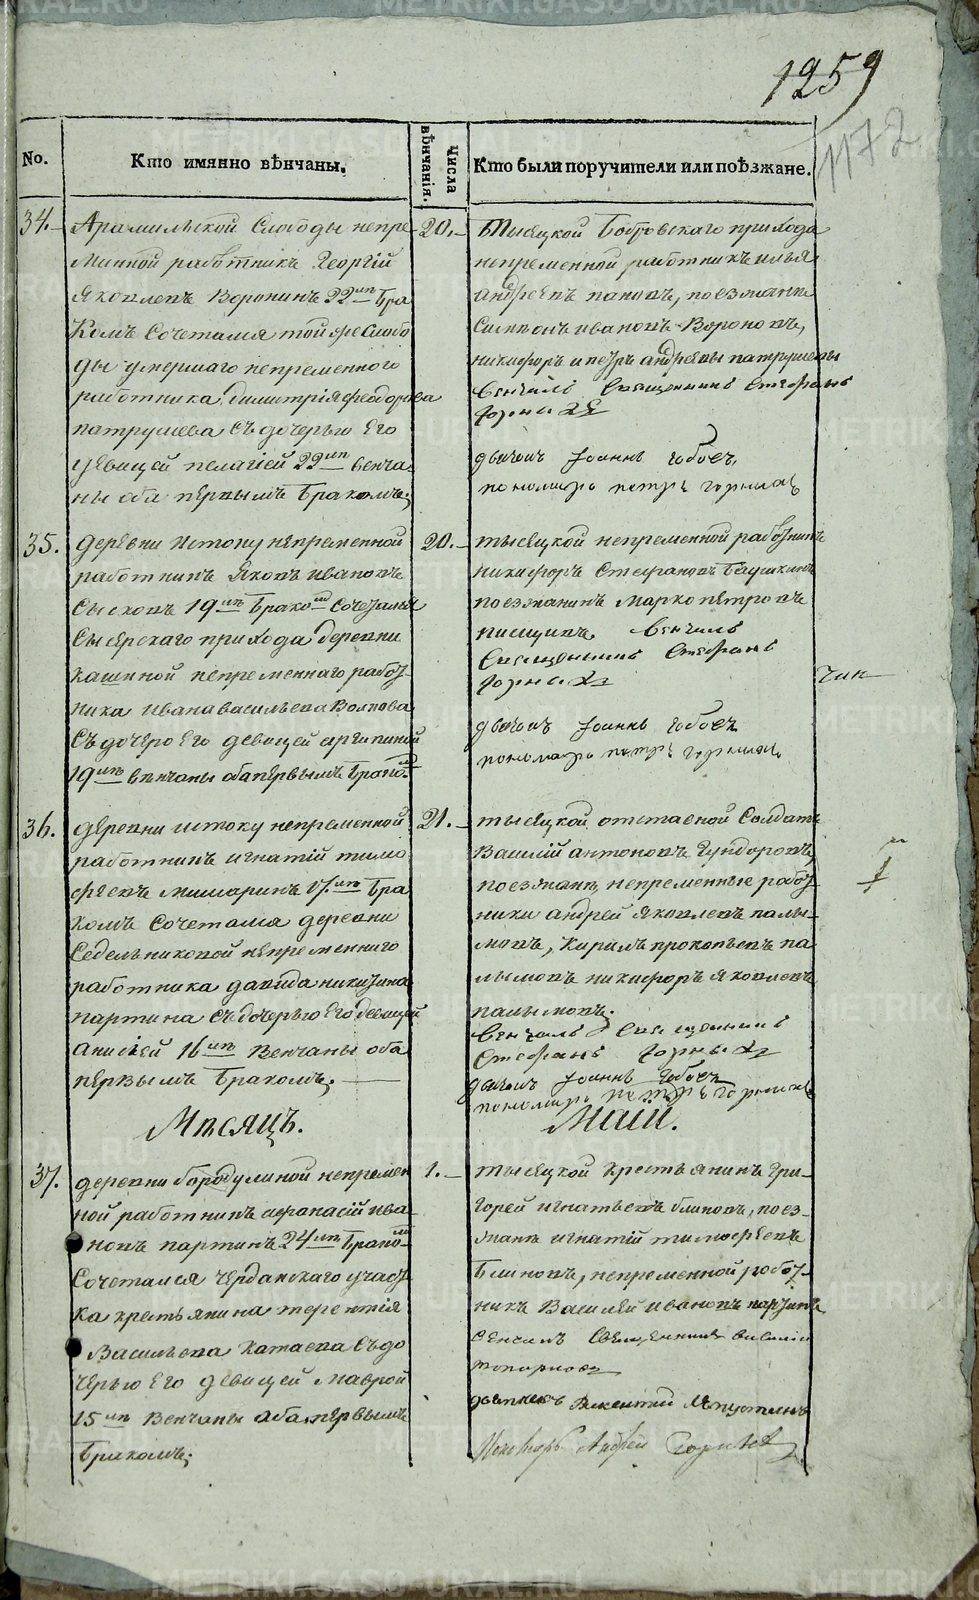 1259
1172
No.
Кто имянно вѣнчаны.
Числа вѣнчанія.
Кто были поручители или поѣзжане.
34.
Арамильской Слободы непре
минной работникъ Георгій
Яковлевъ Воронинъ 22 лѣтъ бра
комъ сочетался той же Слобо
ды умершаго непременного
работника Димитрія Феодорова
патрушева съ дочерью его
девицей пелагіей 22 лѣтъ венча
ны оба первымъ бракомъ;
20.
Тысяцкой Бобровскаго прихода
непременной работникъ илья
андреевъ пановъ, поезжане
Симеонъ ивановъ Вороновъ,
никифоръ и петръ андреевы патрушевы
Венчалъ Священникъ Стефанъ
дьячокъ Іоаннъ
пономарь петръ горныхъ
35.
деревни истоку непременной
работникъ Яковъ ивановъ
Сысковъ 19 лѣтъ бракомъ сочетался
Сысерскаго прихода деревни
кашиной непременнаго работ-
ника ивана васильева Волкова
съ дочерью его девицей агрипиной
19 лѣтъ венчаны оба первымъ бракомъ.
20.
тысяцкой непременной работникъ
никифоръ Стефановъ
поезжанинъ Марко петровъ
Венчалъ
Священникъ Стефанъ
дьячокъ Іоаннъ
пономарь петръ горныхъ
36.
деревни истоку непременной
работникъ игнатій тимо
феевъ 17 лѣтъ бра
комъ сочетался деревни
Седельниковой непременнаго
работника давида никитина
партина съ дочерью его девицей
анисіей 16 лѣтъ Венчаны оба
первымъ бракомъ;
21.
тысяцкой отставной Солдатъ
Василій антоновъ Гундоровъ,
поезжане, непременные работ-
ники андрей Яковлевъ палы-
мовъ, Кирилъ прокопьевъ па
лымовъ никифоръ Яковлевъ
палымовъ.
Венчалъ Священникъ
Стефанъ
дьячокъ Іоаннъ
пономарь петръ горныхъ
Мѣсяцъ.
Маій.
37.
деревни бородулиной непремен
ной работникъ афанасій ива
новъ партинъ 24 лѣтъ бракомъ
сочетался Черданскаго участ-
ка крестьянина терентія
Васильева Катаева съ до
черью его девицей маврой
15 лѣтъ Венчаны оба первымъ
бракомъ;
1.
тысяцкой крестьянинъ Гри-
горей игнатьевъ блиновъ, поез-
жане игнатій тимофеевъ
Блиновъ, непременной работ-
никъ Василей ивановъ партинъ
венчалъ Священникъ василій
топорковъ
дьячокъ Викентій
Пономарь Андрей